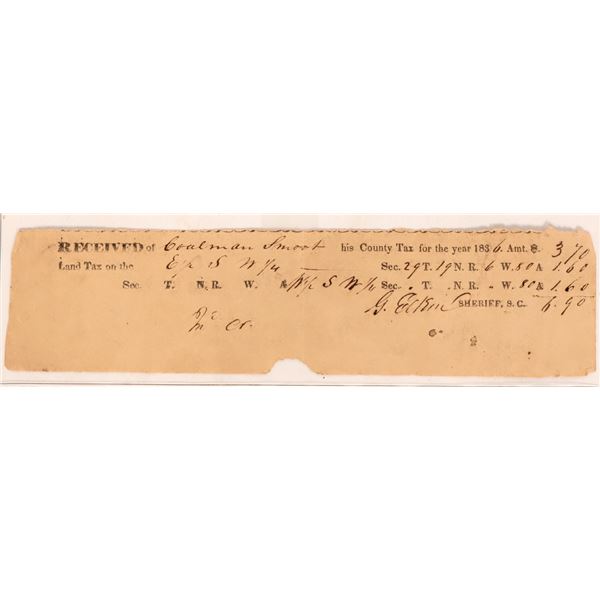 RECEIVED of Coalman Smoot his County Tax for the year 1836. Amt. $. 3.70
Land Tax on the E½ S W ¼ Sec. 29 T. 19 N. R. 6 W. 80 A 1.60
Sec. T. N. R. W. A W½ S W ¼ Sec. " T. " N. R. " W. 80 A 1.60
G. Elkin SHERIFF, S. C. 6.90